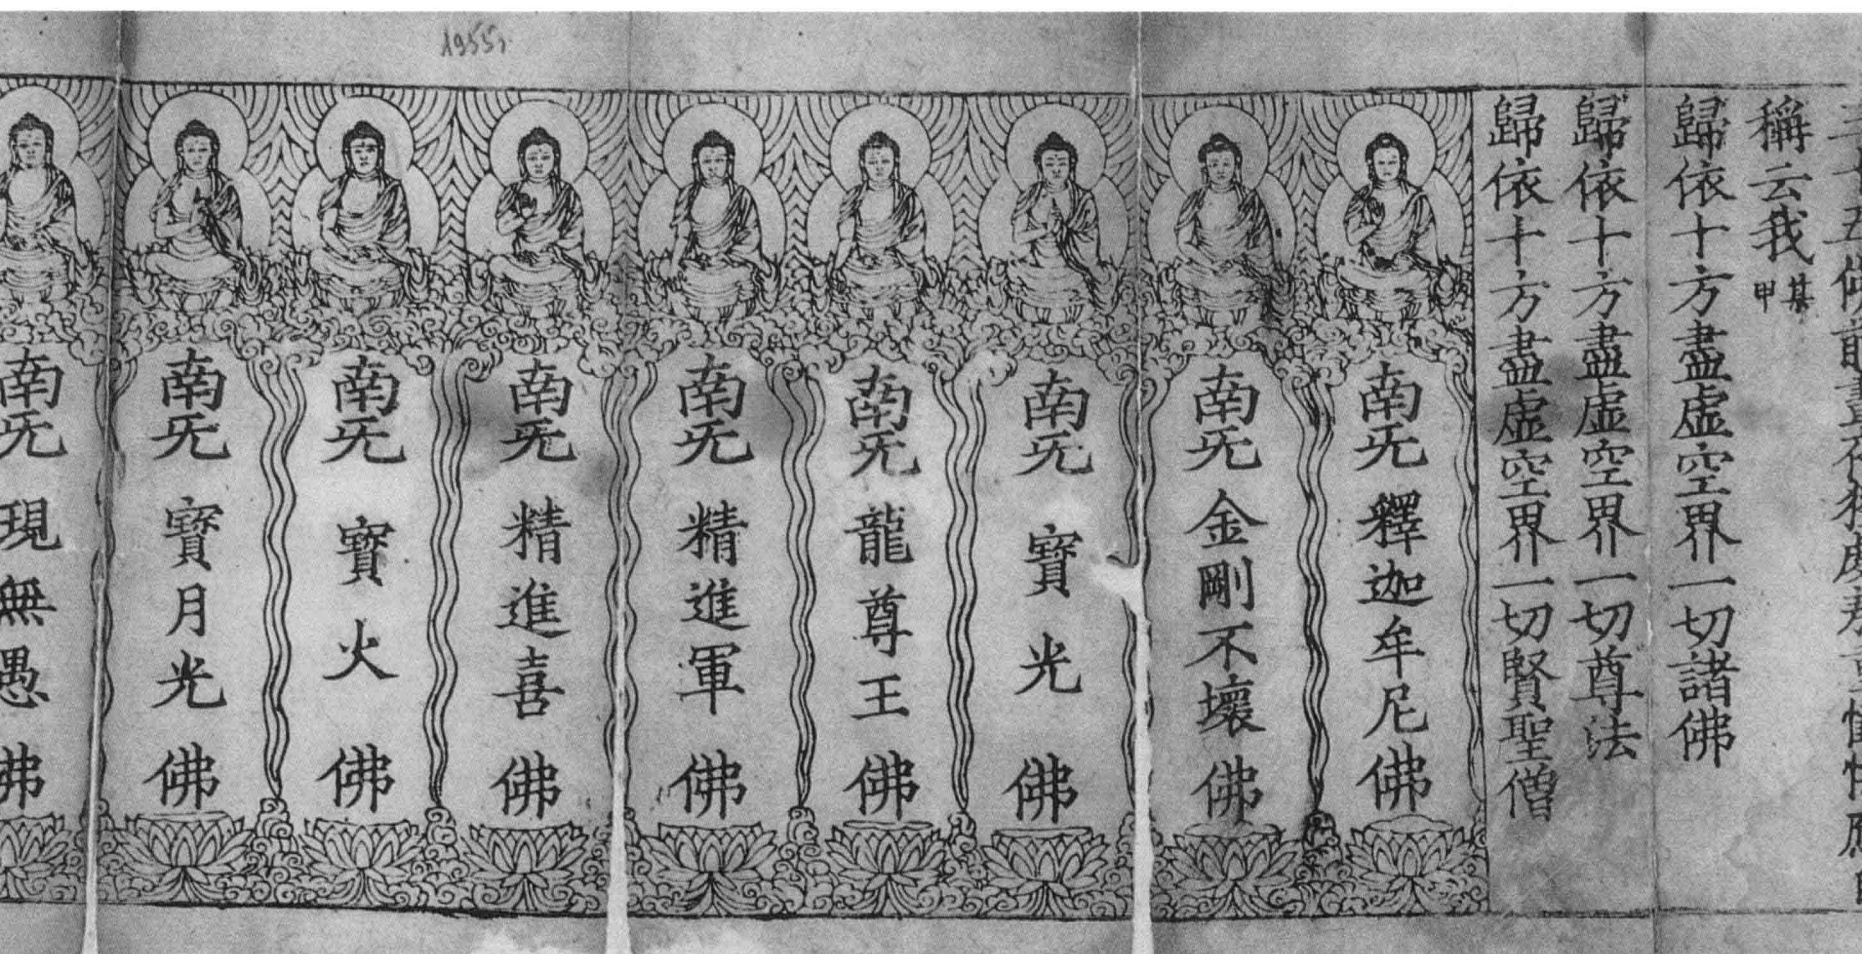 1955,
三十五佛前晝夜獨處殷重懺悔應自
稱云我某甲
歸依十方盡虛空界一切諸佛
歸依十方盡虛空界一切尊法
歸依十方盡虛空界一切賢聖僧
南无釋迦牟尼佛
南无金剛不壞佛
南无寶光佛
南无龍尊王佛
南无精進軍佛
南无精進喜佛
南无寶火佛
南无寶月光佛
南无現無愚佛